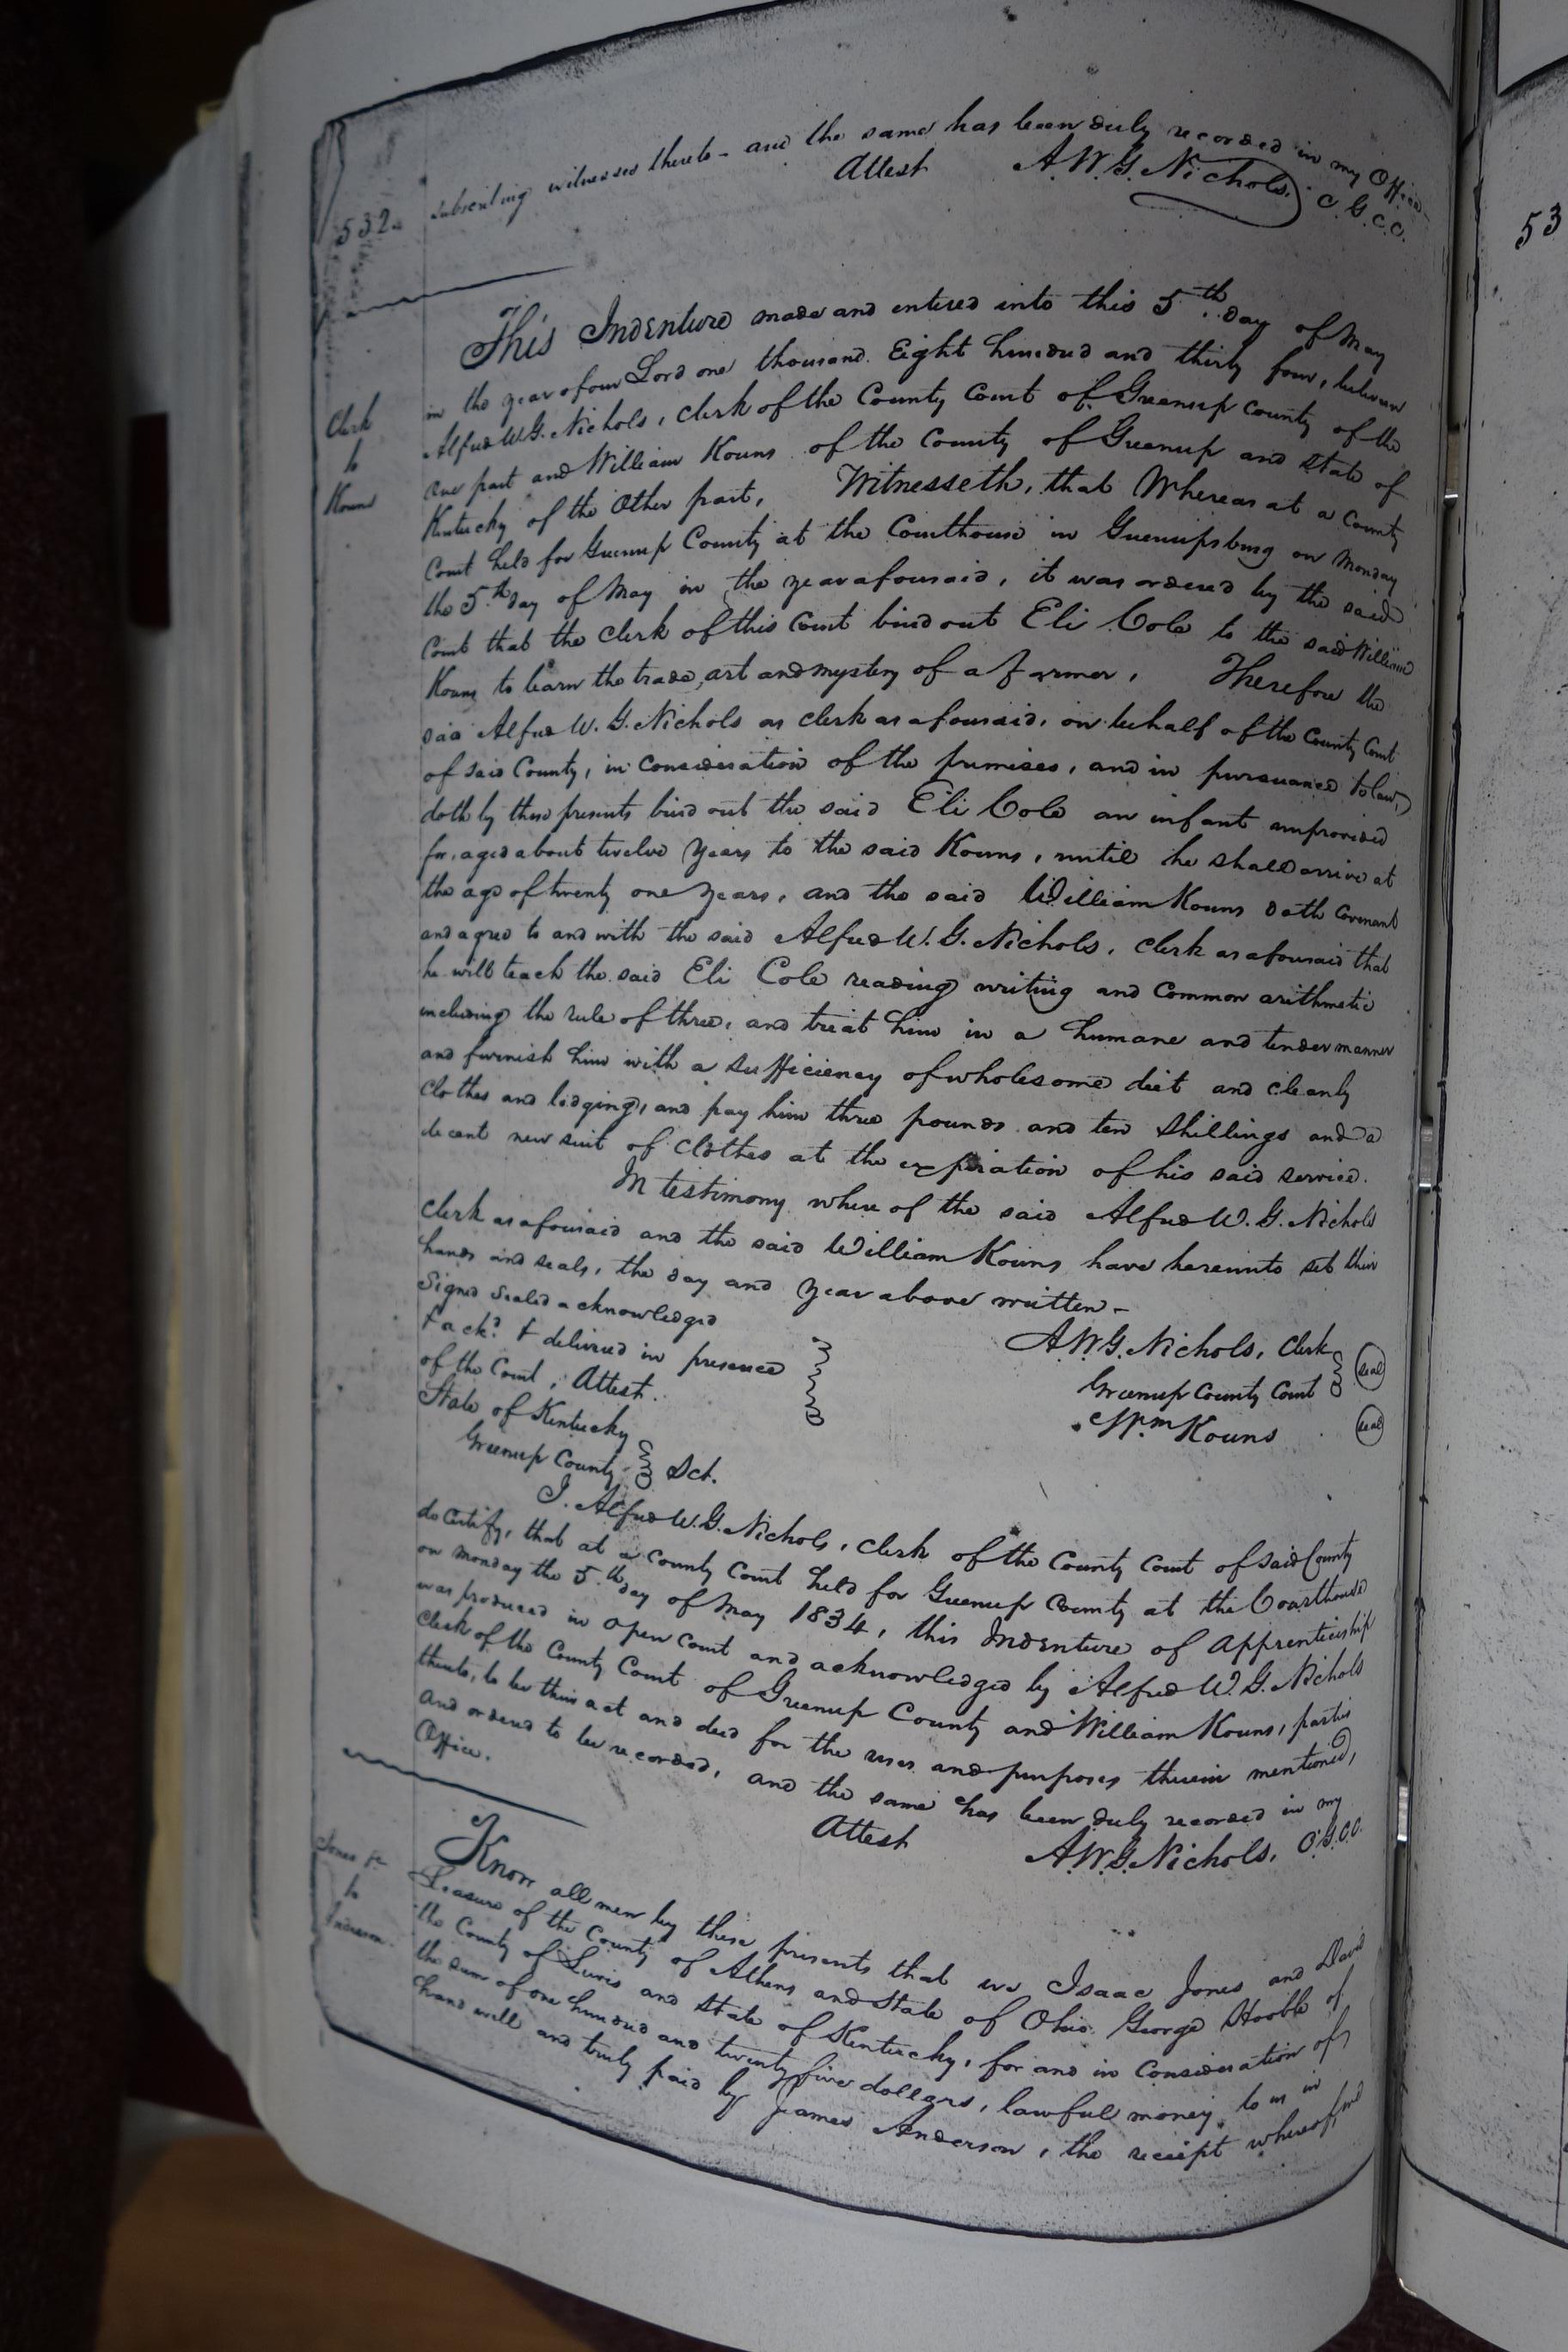 532
subscribing witnesses thereto - and the same has been duly recorded in my Office
Attest A. W. G. Nichols. C.G.C.C.
This Indenture made and entered into this 5th. day of May
in the year of our Lord one thousand Eight hundred and thirty four, between
Alfred W. G. Nichols, clerk of the County Court of Greenup County of the
Clerk
to
Kouns
one part and William Kouns of the County of Greenup and State of
Kentucky of the Other part, Witnesseth, that Whereas at a County
Court held for Greenup County at the Courthouse in Greenupsburg on Monday
the 5th day of May in the year aforesaid, it was ordered by the said
Court that the clerk of this Court bind out Eli Cole to the said William
Kouns to learn the trade, art and mystery of a farmer, Therefore the
said Alfred W. G. Nichols as clerk as aforesaid, on behalf of the County Court
of said County, in Consideration of the premises, and in pursuance to law,
doth by these presents bind out the said Eli Cole an infant unprovided
for, aged about twelve years to the said Kouns, until he shall arrive at
the age of twenty one years, and the said William Kouns doth Covenant
and agree to and with the said Alfred W. G. Nichols, clerk as aforesaid that
he will teach the said Eli Cole reading writing and Common arithmetic
including the rule of three, and treat him in a humane and tender manner
and furnish him with a sufficiency of wholesome diet and cleanly
clothes and lodging, and pay him three pounds and ten shillings and a
decent new suit of clothes at the expiration of his said service.
In testimony where of the said Alfred W. G. Nichols
clerk as aforesaid and the said William Kouns have hereunto set their
hands and seals, the day and year above written -
Signed Sealed acknowledged
& ackd & delivered in presence
of the Court, Attest.
A.W.G. Nichols, Clerk
Greenup County Court Seal
Wm Kouns Seal
State of Kentucky
Greenup County Sct.
I. Alfred W. G. Nichols, clerk of the County Court of said County
do certify, that at a County Court held for Greenup County at the Courthouse
on Monday the 5th day of May 1834, this Indenture of Apprenticeship
was produced in open Court and acknowledged by Alfred W. G. Nichols
Clerk of the County Court of Greenup County and William Kouns, parties
thereto, to be their act and deed for the uses and purposes therein mentioned,
and ordered to be recorded, and the same has been duly recorded in my
Office.
Attest A.W.G. Nichols, C.G.C.C.
Jones &c
to
Anderson
Know all men by these presents that we Isaac Jones and David
Pleasure of the County of Athens and State of Ohio George Hooble of
the County of Lewis and State of Kentucky, for and in Consideration of
the sum of one hundred and twenty five dollars, lawful money, to us in
hand well and truly paid by James Anderson, the receipt whereof
53